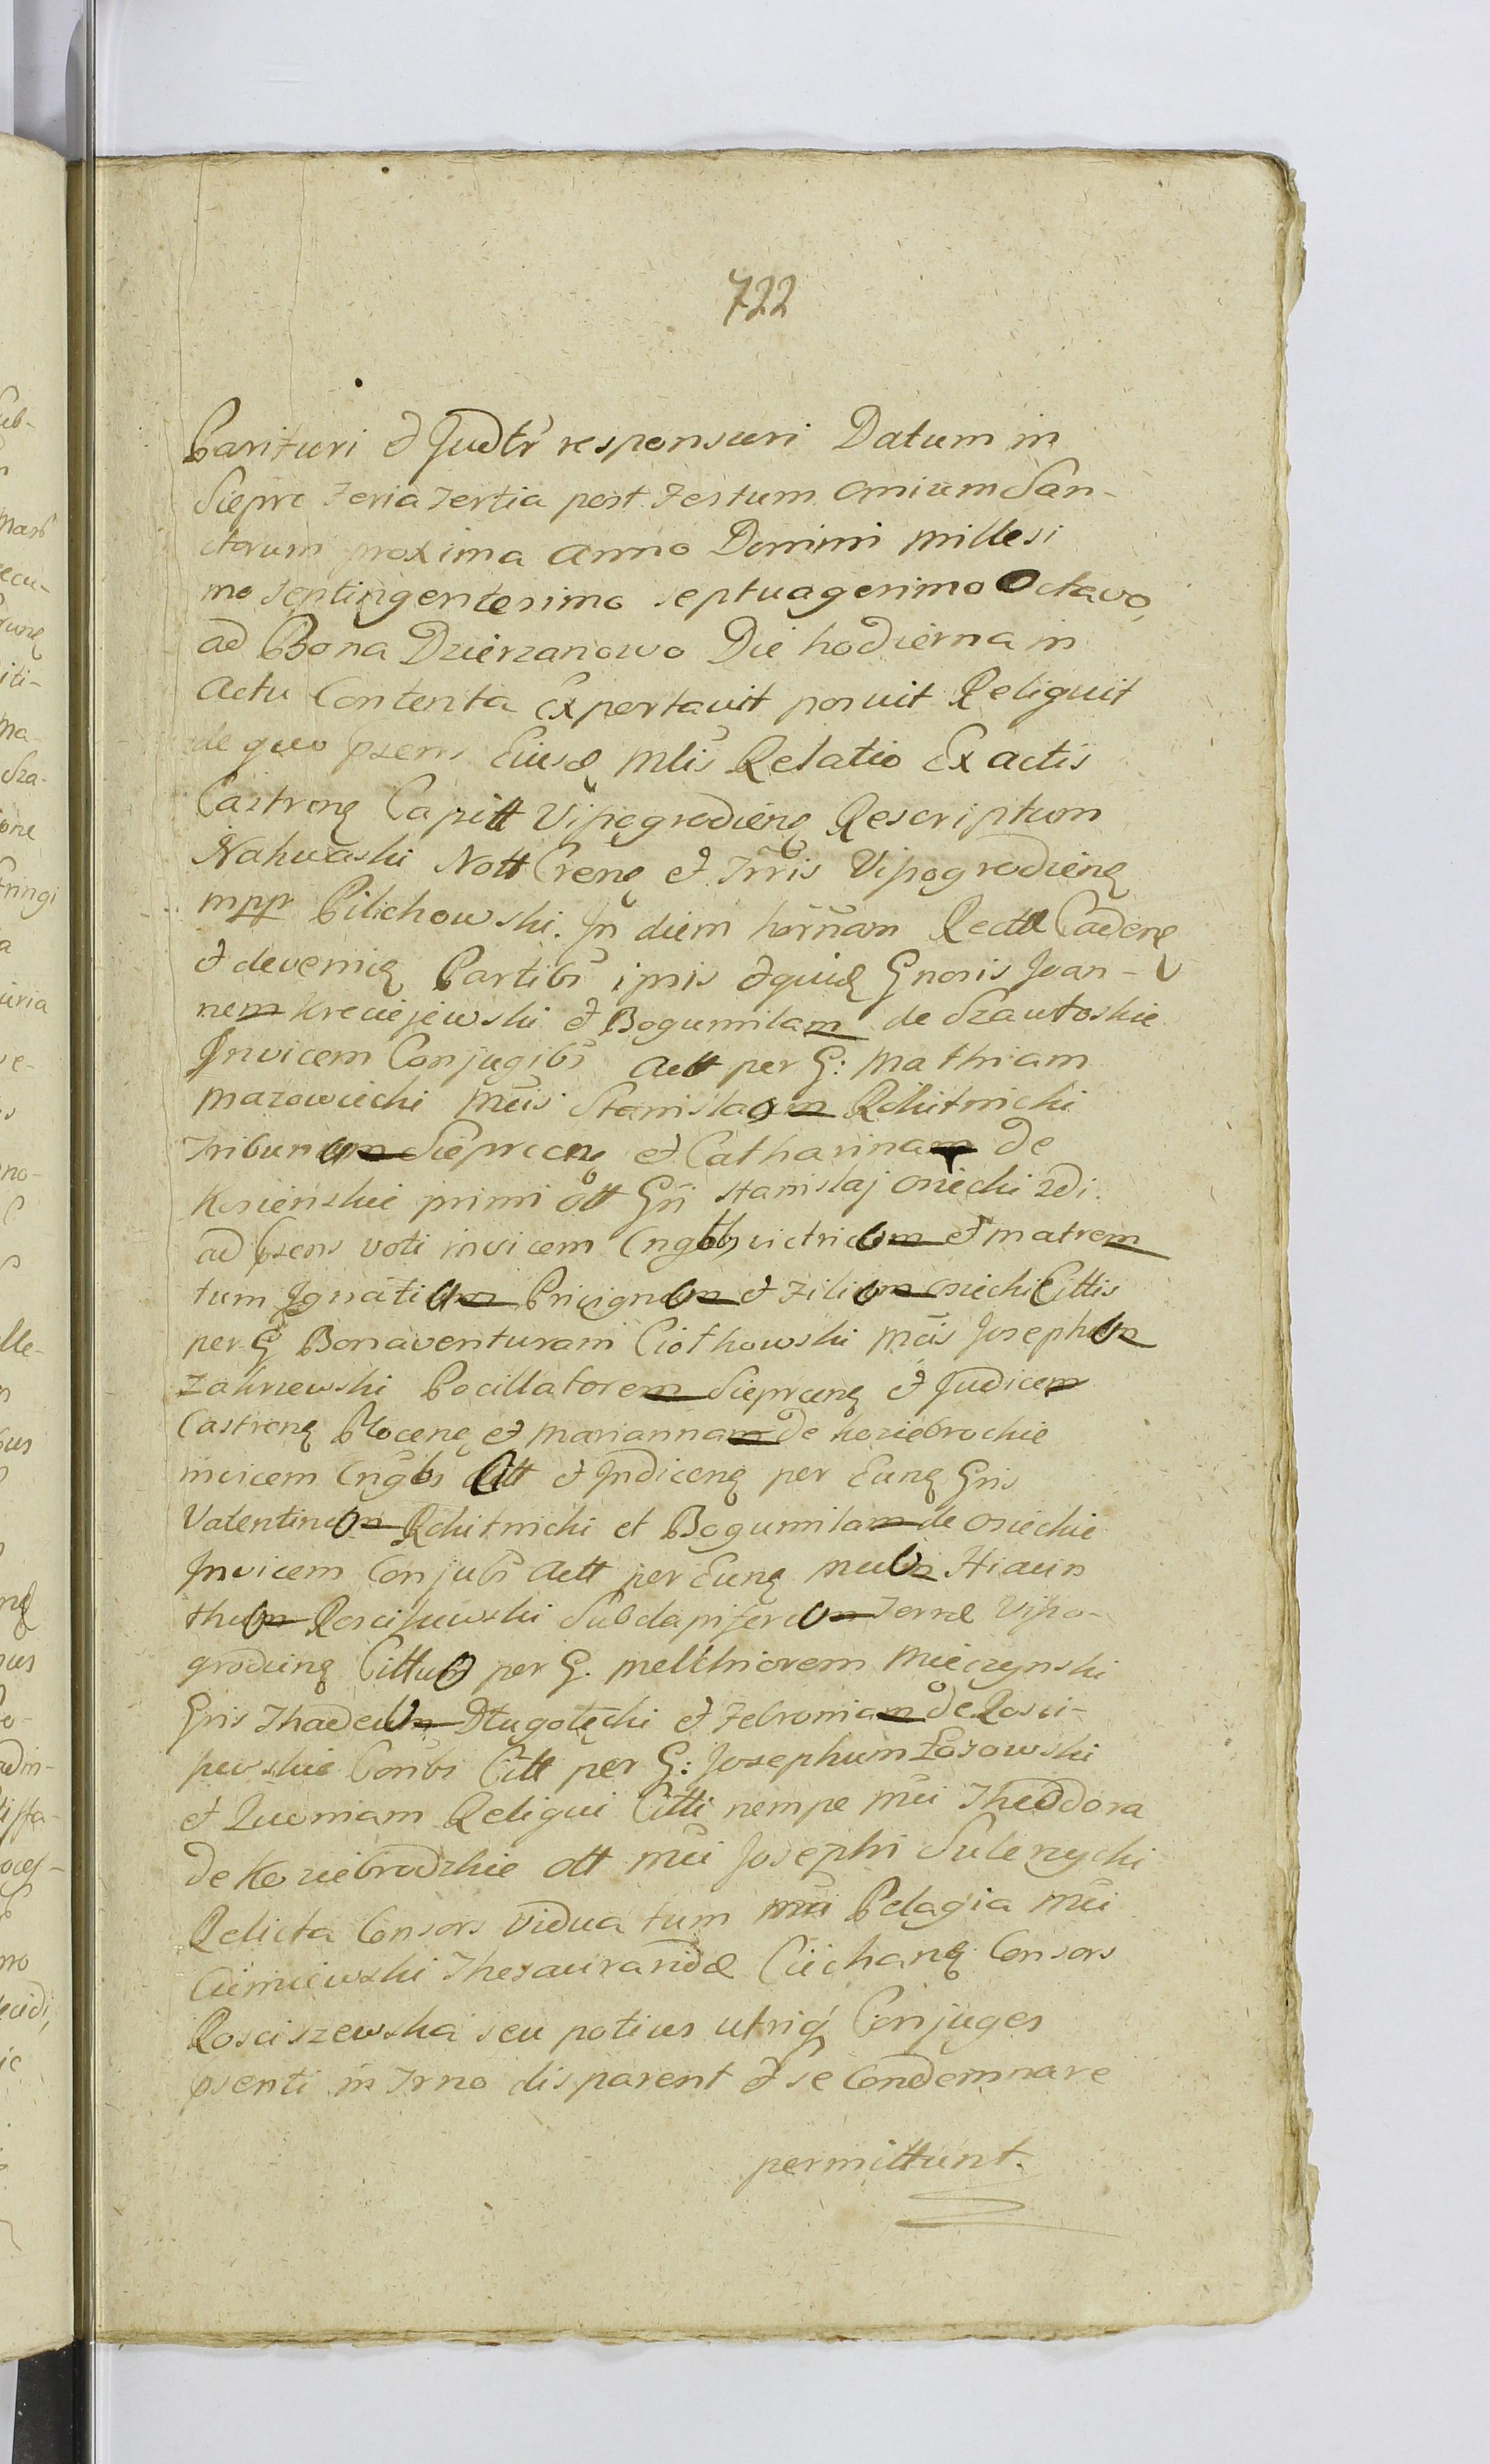 722
Parituri et Judtr responsuri Datum in
Sieprc Feria Tertia post Festum Omium San-
ctorum proxima Anno Domini Millesi
mo Septingentesimo septuagesimo Octavo,
ad Bona Dzierzanowo Die hodierna in
Actu Contenta Exportavit posuit Reliquit
de quo psens Eiusd Mlis Relatio Ex actis
Castrens Capitt Vissogrodiens Rescriptum
Nakwaski Nott Crens et Trris Vissogrodiens
mpp Pilichowski. In diem hornam Recte Cadens
et deveniens Partibs ipsis et quid Gnosis Joan-
nem Kreciejewski et Bogumilam de Szautoskie
Invicem Conjugibs Actt per G: Mathiam
Mazowiecki Mcis Stanislaum Rchitnicki
Tribunum Sieprcens et Catharinam de
Kosienskie primi ott Gsi Stanislaj Osiecki 2di
ad psens voti invicem Cngbs victricum et Matrem
tum Ignatium Privignum et Filium Osiecki Cittis
per G Bonaventuram Ciotkowski Mcis Josephum
Zakrzewski Pocillatorem Sieprcens et Judicem
Castrens Plocens et Mariannam de Koziebrockie
invicem Cngbs Citt et Indicens per Eund Gsis
Valentinum Rchitnicki et Bogumilam de Osieckie
Invicem Conjubs Actt per Eund Hiacin
thum Rosciszewski Subdapiferum Terrae Visso-
grodiens Cittum per G. Melchiorem Mieczynski
Gsis Thadeum Dlugolęcki et Febroniam de Rosci-
szewskie Conbs Citt per G: Josephum Łosowski
et Quoniam Reliqui Citti nempe Mci Theodora
de Koziebrodzkie ott Mci Josephi Sulerzycki
Relicta Consors Vidua tum Mci Pelagia Mci
Cieminiewski Thesauraridae Ciechans Consors
Rosciszewska seu potius utriq Conjuges
psenti in Trno disparent et se Condemnare
permittunt.